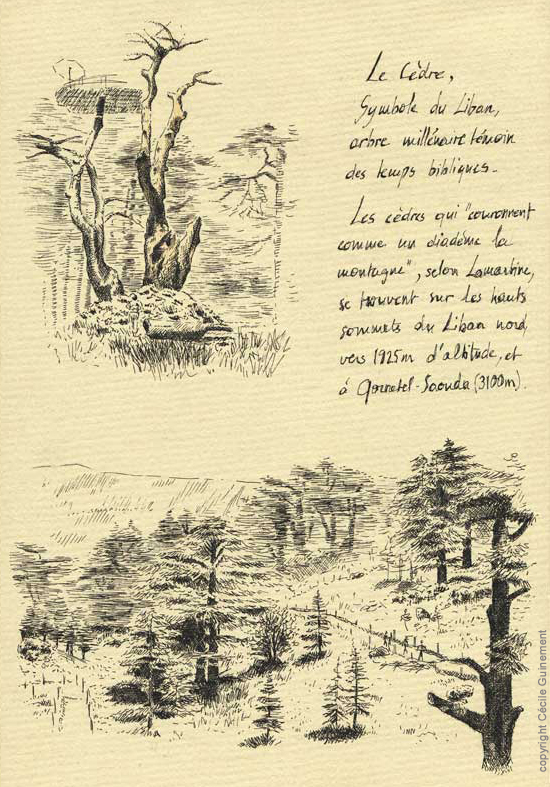 Le Cèdre,
Symbole du Liban,
arbre millénaire témoin
des temps bibliques.
Les cèdres qui "couronnent
comme un diadème la
montagne", selon Lamartine,
se trouvent sur les hauts
sommets du Liban nord,
vers 1925m d'altitude, et
à Qornetel-Saouda (3100m).
copyright Cécile Guinement